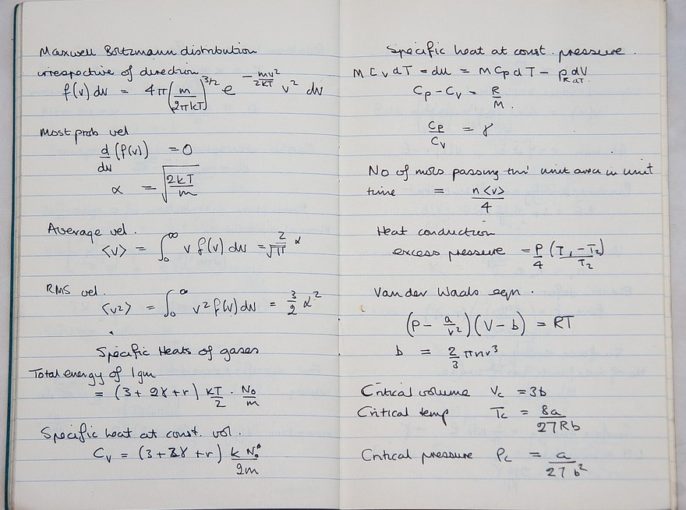 Maxwell Boltzmann distribution
irrespective of direction
f(v) dv = 4π(m/2πkT)^3/2 e^-mv²/2kT v² dv
Most prob vel
d/dv (f(v)) = 0
α = √(2kT/m)
Average vel.
<v> = ∫₀^∞ v f(v) dv = 2/√π α
RMS vel.
<v²> = ∫₀^∞ v² f(v) dv = 3/2 α²
Specific Heats of gases
Total energy of 1gm
= (3 + 2γ + r) kT/2 . N₀/m
Specific heat at const. vol.
Cv = (3 + 2γ + r) k N₀/2m
Specific heat at const. pressure.
m Cv dT = du = m Cp dT - p dV
Cp - Cv = R/M.
Cp/Cv = γ
No of mols passing thro' unit area in unit
time = n<v>/4
Heat conduction
excess pressure = P/4 (T₁ - T₂)/T₂
Van der Waals eqn.
(P - a/v²)(V - b) = RT
b = 2/3 πnr³
Critical volume Vc = 3b
Critical temp Tc = 8a/27Rb
Critical pressure Pc = a/27b²